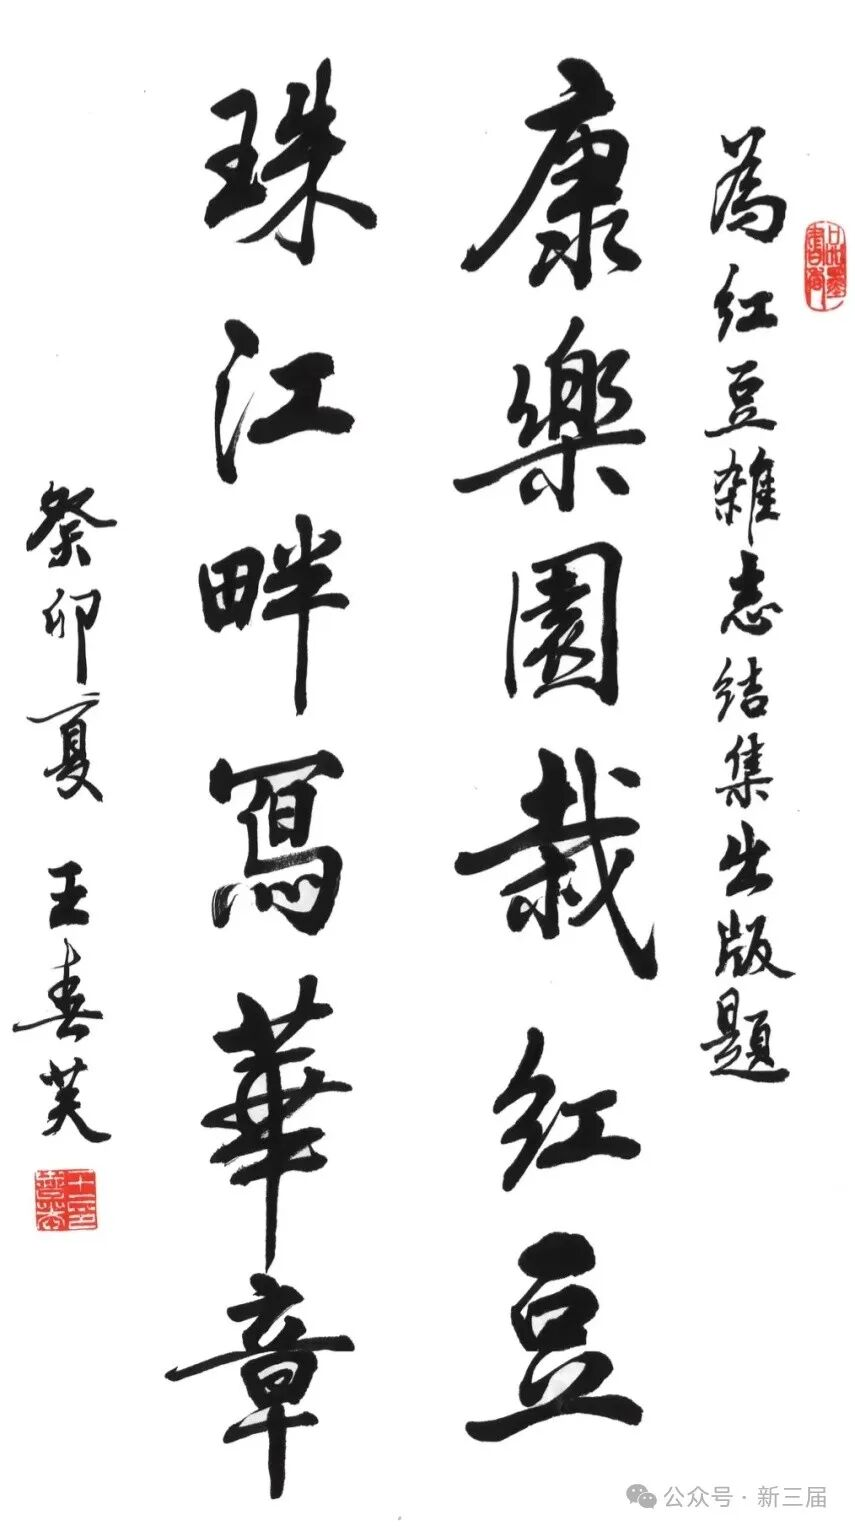 為红豆雜志结集出版題
康樂園栽红豆
珠江畔寫華章
癸卯夏 王春芙
公众号·新三届